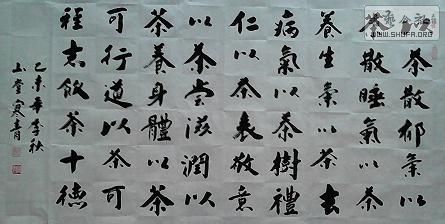 茶散郁氣以
茶散睡氣以茶
養生氣以茶去
病氣以茶樹禮
仁以茶表敬意
以茶嘗滋潤以
茶養身體以茶
可行道以茶可
程志飲茶十德
己未年季秋
山堂寒青
WWW.SHUFA.ORG